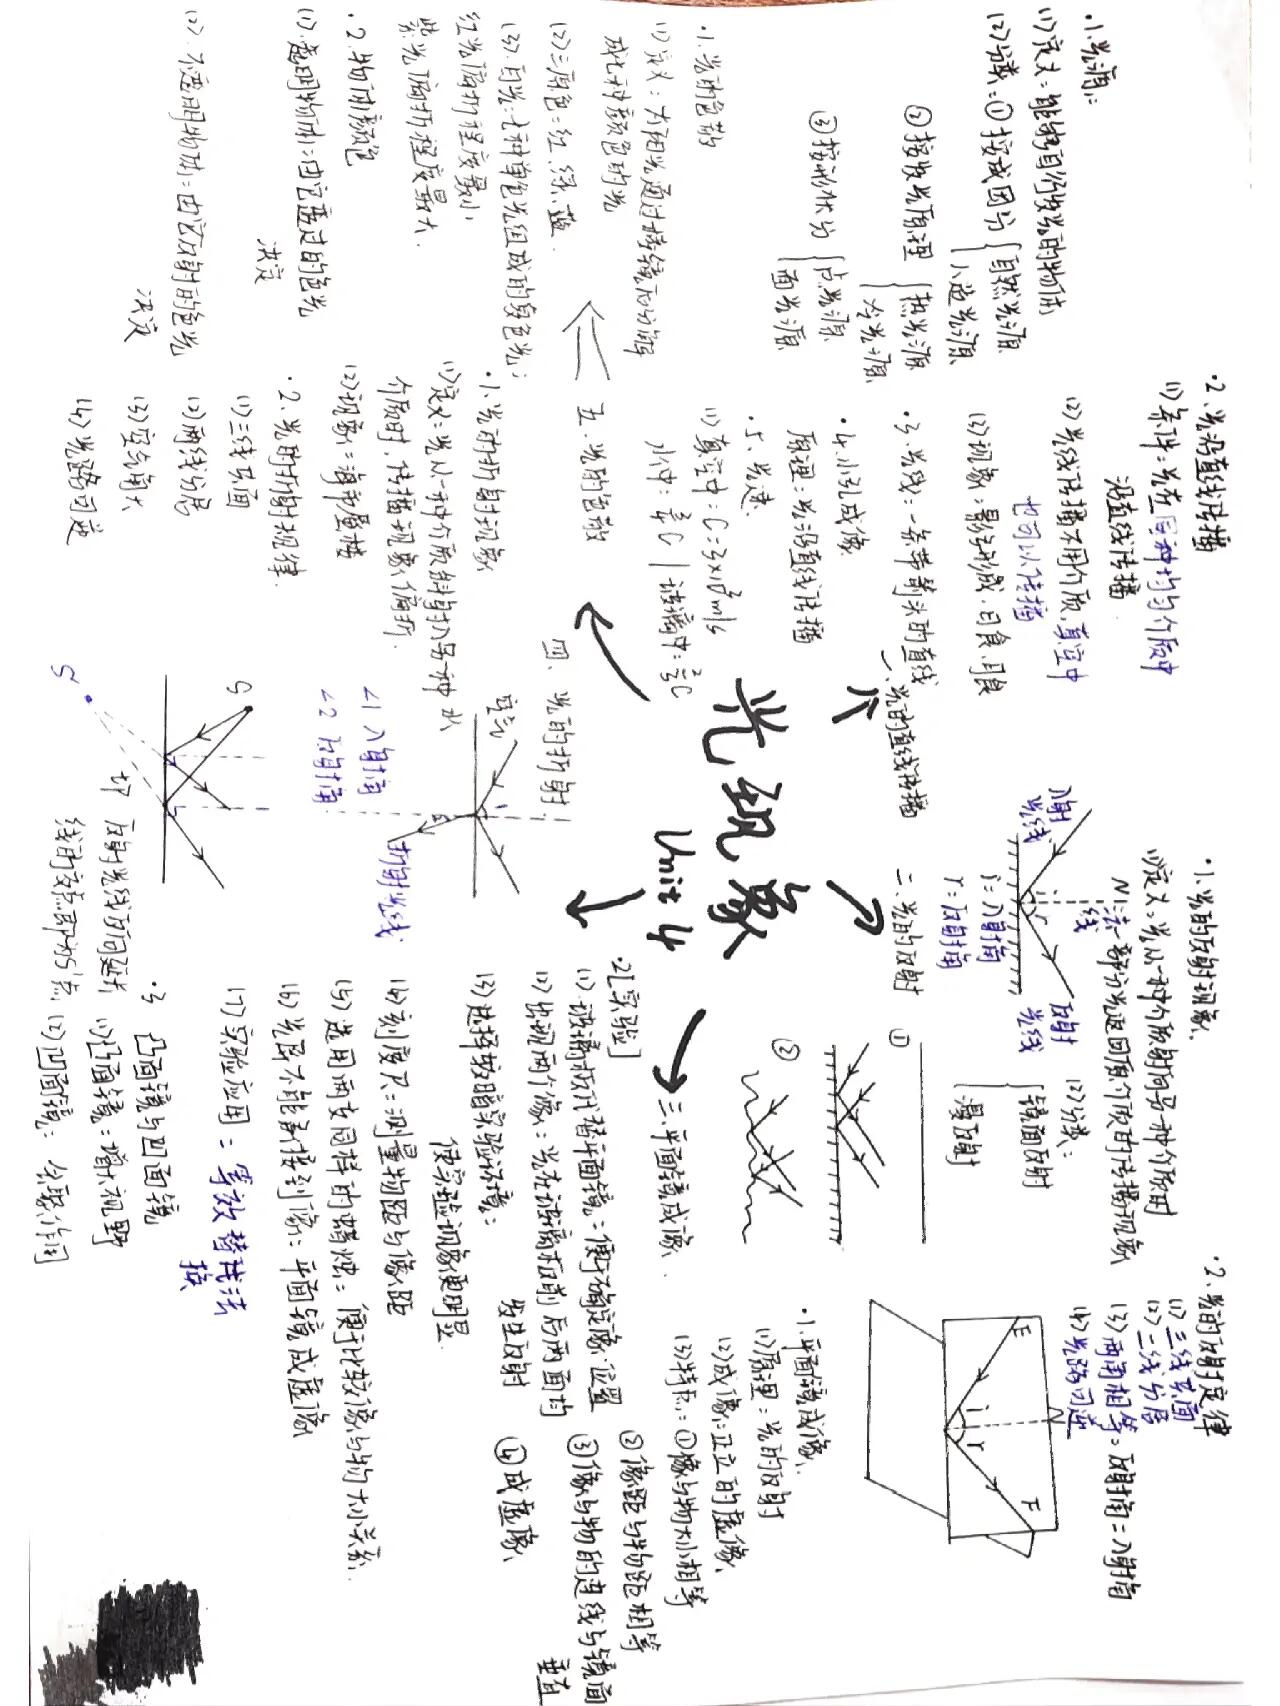 光现象
Unit 4
一、光的直线传播
·1.光源:
(1)定义:能够自行发光的物体
(2)分类:①按成因分
自然光源
人造光源
②按发光原理
热光源
冷光源
③按形状分
点光源
面光源
·2.光沿直线传播
(1)条件:光在同种均匀介质中
沿直线传播
(2)光线传播不用介质,真空中
也可以传播
(3)现象:影子形成,日食,月食
·3.光线:一条带箭头的直线
·4.小孔成像
原理:光沿直线传播
·5.光速
(1)真空中:C=3×10⁸m/s
水中:¾C 玻璃中:⅔C
二、光的反射
·1.光的反射现象
(1)定义:光从一种介质射向另一种介质时
一部分光返回原介质的传播现象
N:法线
入射
光线
反射
光线
i
r
i=入射角
r=反射角
(2)分类:
镜面反射
漫反射
①
②
·2.光的反射定律
(1)三线共面
(2)二线分居
(3)两角相等:反射角=入射角
(4)光路可逆
E
N
i
r
F
三.平面镜成像
·1.平面镜成像
(1)原理:光的反射
(2)成像:正立的虚像
(3)特点:①像与物大小相等
②像距与物距相等
③像与物的连线与镜面
垂直
④成虚像
·2[实验]
(1)玻璃板代替平面镜:便于确定像位置
(2)出现两个像:光在玻璃板前后两面均
发生反射
(3)选择较暗实验环境:
使实验现象更明显
(4)刻度尺:测量物距与像距
(5)选用两支同样的蜡烛:便于比较像与物大小关系
(6)光屏不能承接到像:平面镜成虚像
(7)实验应用:等效替代法
·3 凸面镜与凹面镜
(1)凸面镜:增大视野
(2)凹面镜:会聚作用
四、光的折射
空气
水
∠1 入射角
∠2 折射角
折射光线
·1.光的折射现象
(1)定义:光从一种介质斜射入另一种
介质时,传播现象偏折
(2)现象:海市蜃楼
·2.光的折射规律
(1)三线共面
(2)两线分居
(3)空气角大
(4)光路可逆
S
S'
反射光线反向延长
线的交点即为S'点
五.光的色散
·1.光的色散
(1)定义:太阳光通过棱镜可分解
成七种颜色的光
(2)三原色:红、绿、蓝
(3)白光:七种单色光组成的复色光;
红光偏折程度最小
紫光偏折程度最大.
·2.物体颜色
(1).透明物体:由它透过的色光
决定
(2).不透明物体:由它反射的色光
决定